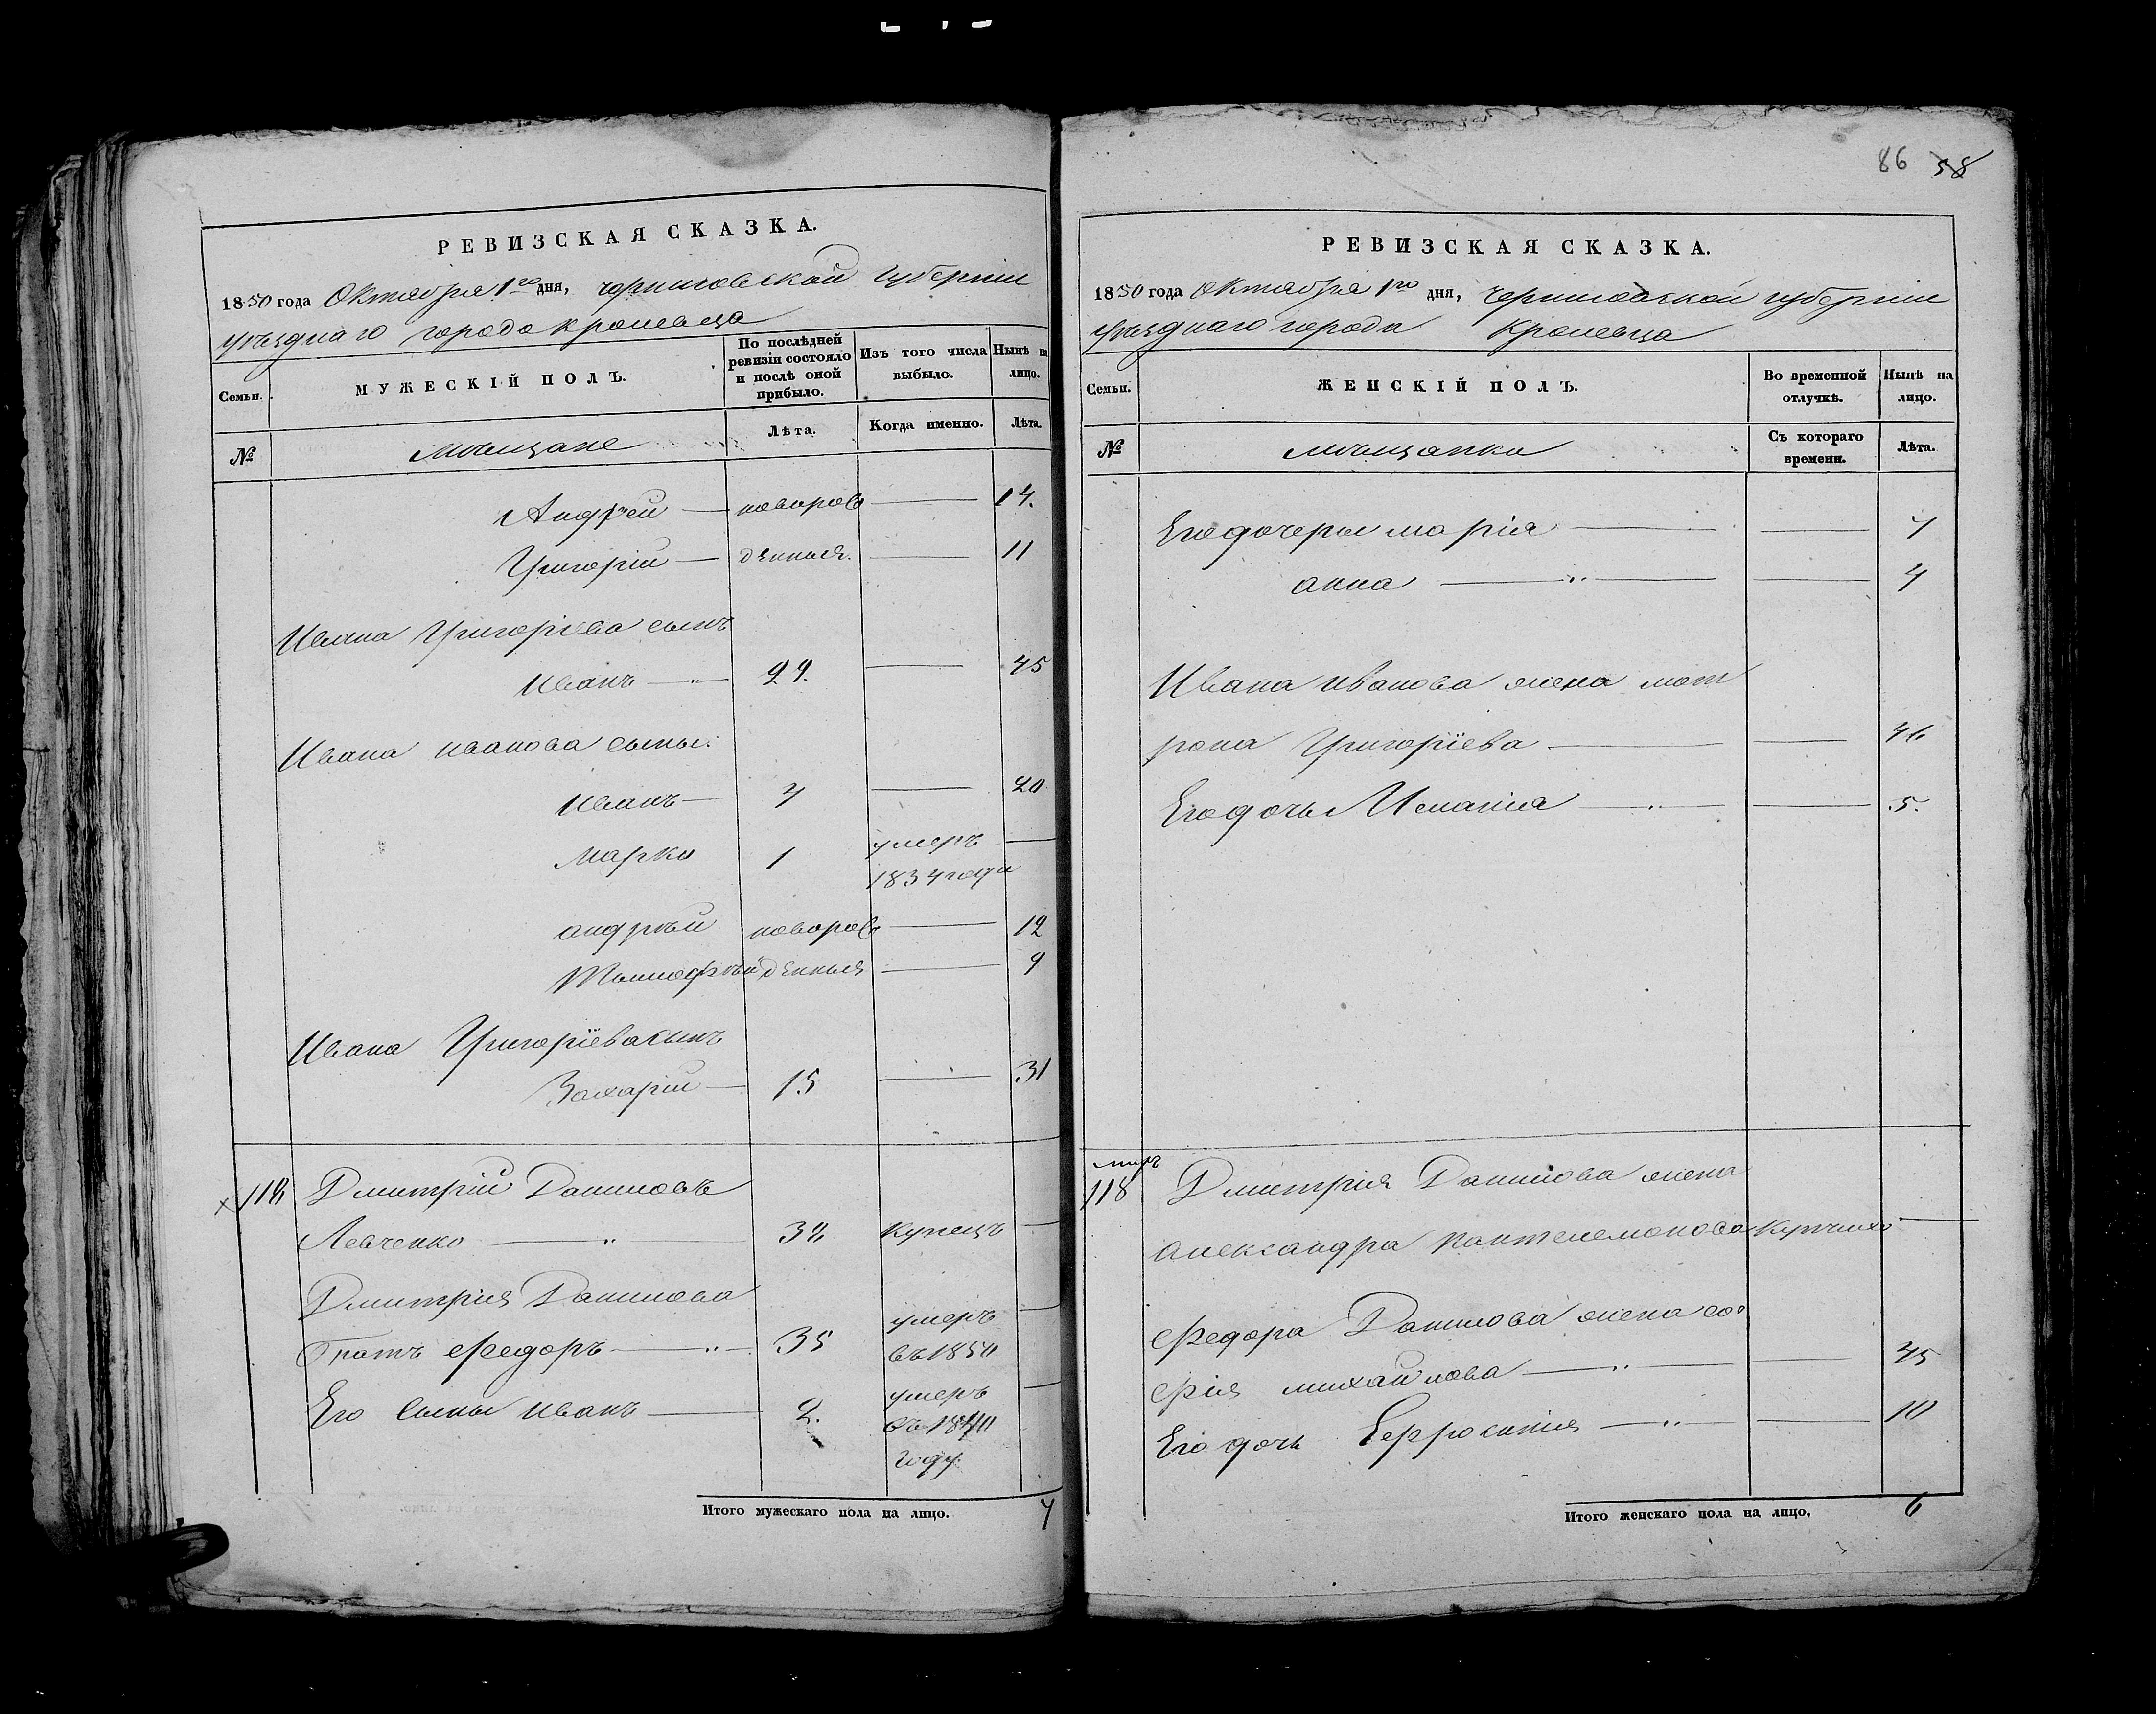 РЕВИЗСКАЯ СКАЗКА.
1850 года Октября 1го дня, черниговской губернии
уѣзднаго города кролевца
Семьи.
МУЖЕСКІЙ ПОЛЪ.
По послѣдней ревизіи состояло и послѣ оной прибыло.
Изъ того числа выбыло.
Нынѣ на лицо.
№
мѣщане
Лѣта.
Когда именно.
Лѣта.
Андрей — новорож — 14.
Григорій — денныя. — 11
Ивана Григоріева сынъ
Иванъ — 29. — 45
Ивана иванова сыны:
Иванъ — 4 — 20
Марко 1 умеръ —
1834 года
андрѣй новорож — 12
Тимофѣй денныя — 9
Ивана Григоріева сынъ
Захарій — 15 — 31
118 Дмитрій Даниловъ
Левченко — 34 купецъ —
Дмитрия Данилова
братъ Федоръ — 35 умеръ —
въ 1850
Его сыны иванъ — 2. умеръ —
въ 1840
году
Итого мужескаго пола на лицо. 7
86 58
РЕВИЗСКАЯ СКАЗКА.
1850 года октября 1го дня, черниговской губерніи
уѣзднаго города Кролевца
Семьи.
ЖЕНСКІЙ ПОЛЪ.
Во временной отлучкѣ.
Нынѣ на лицо.
№
мѣщанки
Съ котораго времени.
Лѣта.
Его дочеры марія — — 7
анна — — 4
Ивана иванова жена мот
рона Григоріева — — 46
Его дочь Меланія — — 5.
118 Дмитрия Данилова жена
александра пантелемонова купчиха —
Федора Данилова жена со
фія михайлова — — 45
Его дочь Ефросинія — — 10
Итого женскаго пола на лицо, 6